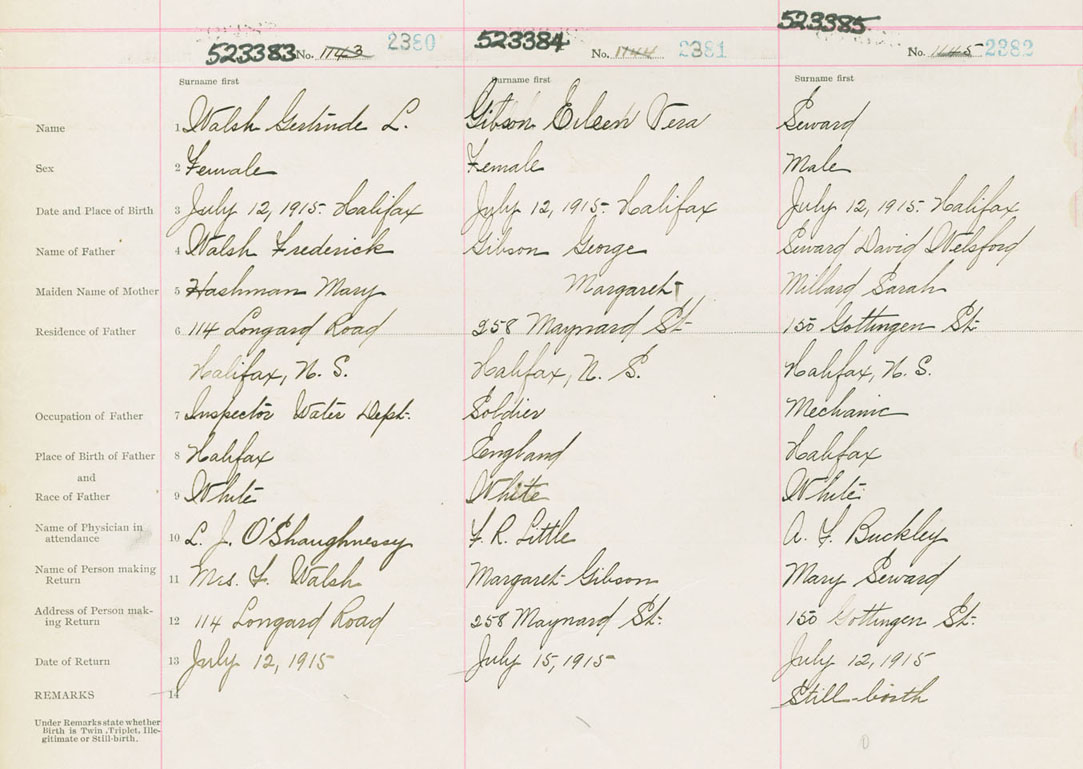 523383 No. 1743 2380 523384 No. 1744 2381 523385 No. 1145 2382
Surname first Surname first Surname first
Name 1 Walsh Gertrude L. Gibson Eileen Vera Seward
Sex 2 Female Female Male
Date and Place of Birth 3 July 12, 1915. Halifax July 12, 1915. Halifax July 12, 1915. Halifax
Name of Father 4 Walsh Frederick Gibson George Seward David Welsford
Maiden Name of Mother 5 Hashman Mary Margaret Millard Sarah
Residence of Father 6 114 Longard Road 258 Maynard St. 150 Gottingen St.
Halifax, N. S. Halifax, N. S. Halifax, N. S.
Occupation of Father 7 Inspector Water Dept. Soldier Mechanic
Place of Birth of Father 8 Halifax England Halifax
and
Race of Father 9 White White White
Name of Physician in
attendance 10 L. J. O'Shaughnessy F. R. Little A. F. Buckley
Name of Person making
Return 11 Mrs. F. Walsh Margaret Gibson Mary Seward
Address of Person mak-
ing Return 12 114 Longard Road 258 Maynard St. 150 Gottingen St.
Date of Return 13 July 12, 1915 July 15, 1915 July 12, 1915
REMARKS 14 Still-birth
Under Remarks state whether
Birth is Twin, Triplet, Ille-
gitimate or Still-birth.